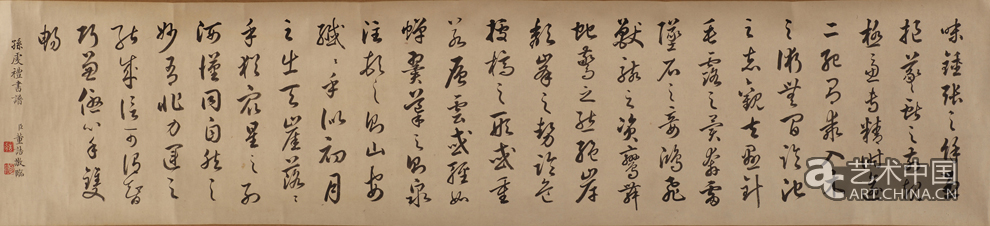 味鍾張之餘烈
挹羲獻之前規
極慮專精時逾
二紀有乖入木
之術無間臨池
之志觀夫懸針
垂露之異奔雷
墜石之奇鴻飛
獸駭之資鸞舞
蛇驚之態絕岸
頹峯之勢臨危
據槁之形或重
若崩雲或輕如
蟬翼導之則泉
注頓之則山安
纖〻乎似初月
之出天崖落〻
乎猶眾星之列
河漢同自然之
妙有非力運之
能成信可謂智
巧兼優心手雙
暢
孫虔禮書譜 臣董誥敬臨
艺术中国
ART.CHINA.CN